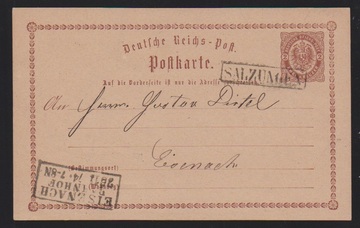 Deutsche Reichs-Post.
Postkarte.
Auf die Vorderseite ist nur die Adresse
SALZUNGEN
An Herrn Gustav
Eisenach
(Bestimmungsort)
EISENACH
BAHNHOF
7-8N